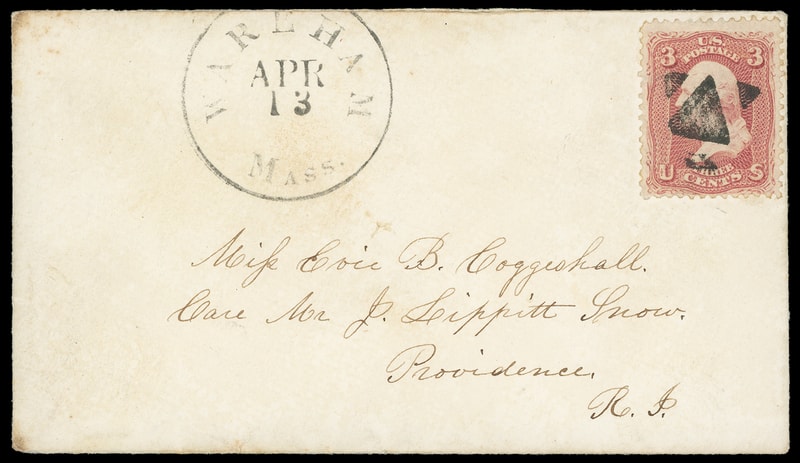 WAREHAM
APR
13
Mass.
3 U.S. 3
POSTAGE
U S
CENTS
Miſs Evie B. Coggeshall.
Care Mr J. Lippitt Snow.
Providence,
R. I.